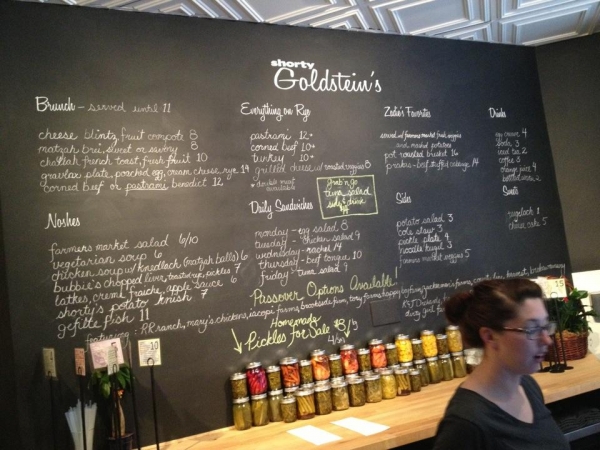 shorty
Goldstein's
Brunch - served until 11
cheese blintz, fruit compote 8
matzah brei, sweet or savory 8
challah french toast, fresh fruit 10
gravlax plate, poached egg, cream cheese, rye 14
corned beef or pastrami benedict 12
Noshes
farmers market salad 6/10
vegetarian soup 6
chicken soup w/kneidlach (matzah balls) 6
bubbie's chopped liver, toasted rye, pickles 7
latkes, creme fraiche, apple sauce 6
shorty's potato knish 7
gefilte fish 11
Everything on Rye
pastrami 12+
corned beef 10+
turkey 10+
grilled cheese w/ roasted veggies 8
+ double meat available
Daily Sandwiches
monday - egg salad 8
tuesday - chicken salad 9
wednesday - rachel 14
thursday - beef tongue 10
friday - tuna salad 9
grab 'n go
tuna salad
side & drink
Zadie's Favorites
served w/ farmers market fresh veggies
and mashed potatoes
pot roasted brisket 16
prakes - beef stuffed cabbage 14
Sides
potato salad 3
cole slaw 3
pickle plate 4
noodle kugel 3
farmers market veggies 5
Drinks
egg cream 4
soda 3
iced tea 2
coffee 3
orange juice 4
bottled water 2
Sweets
rugelach 1
cheese cake 5
Passover Options Available!
featuring: PR ranch, mary's chickens, iacopi farms, brookside farm,
Homemade
Pickles for Sale $8/9